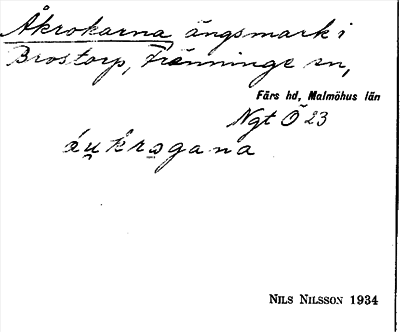 Åkrokarna ängsmark i
Brostorp, Fränninge sn,
Färs hd, Malmöhus län
Ngt Ö 23
áu̯krɔgana
NILS NILSSON 1934